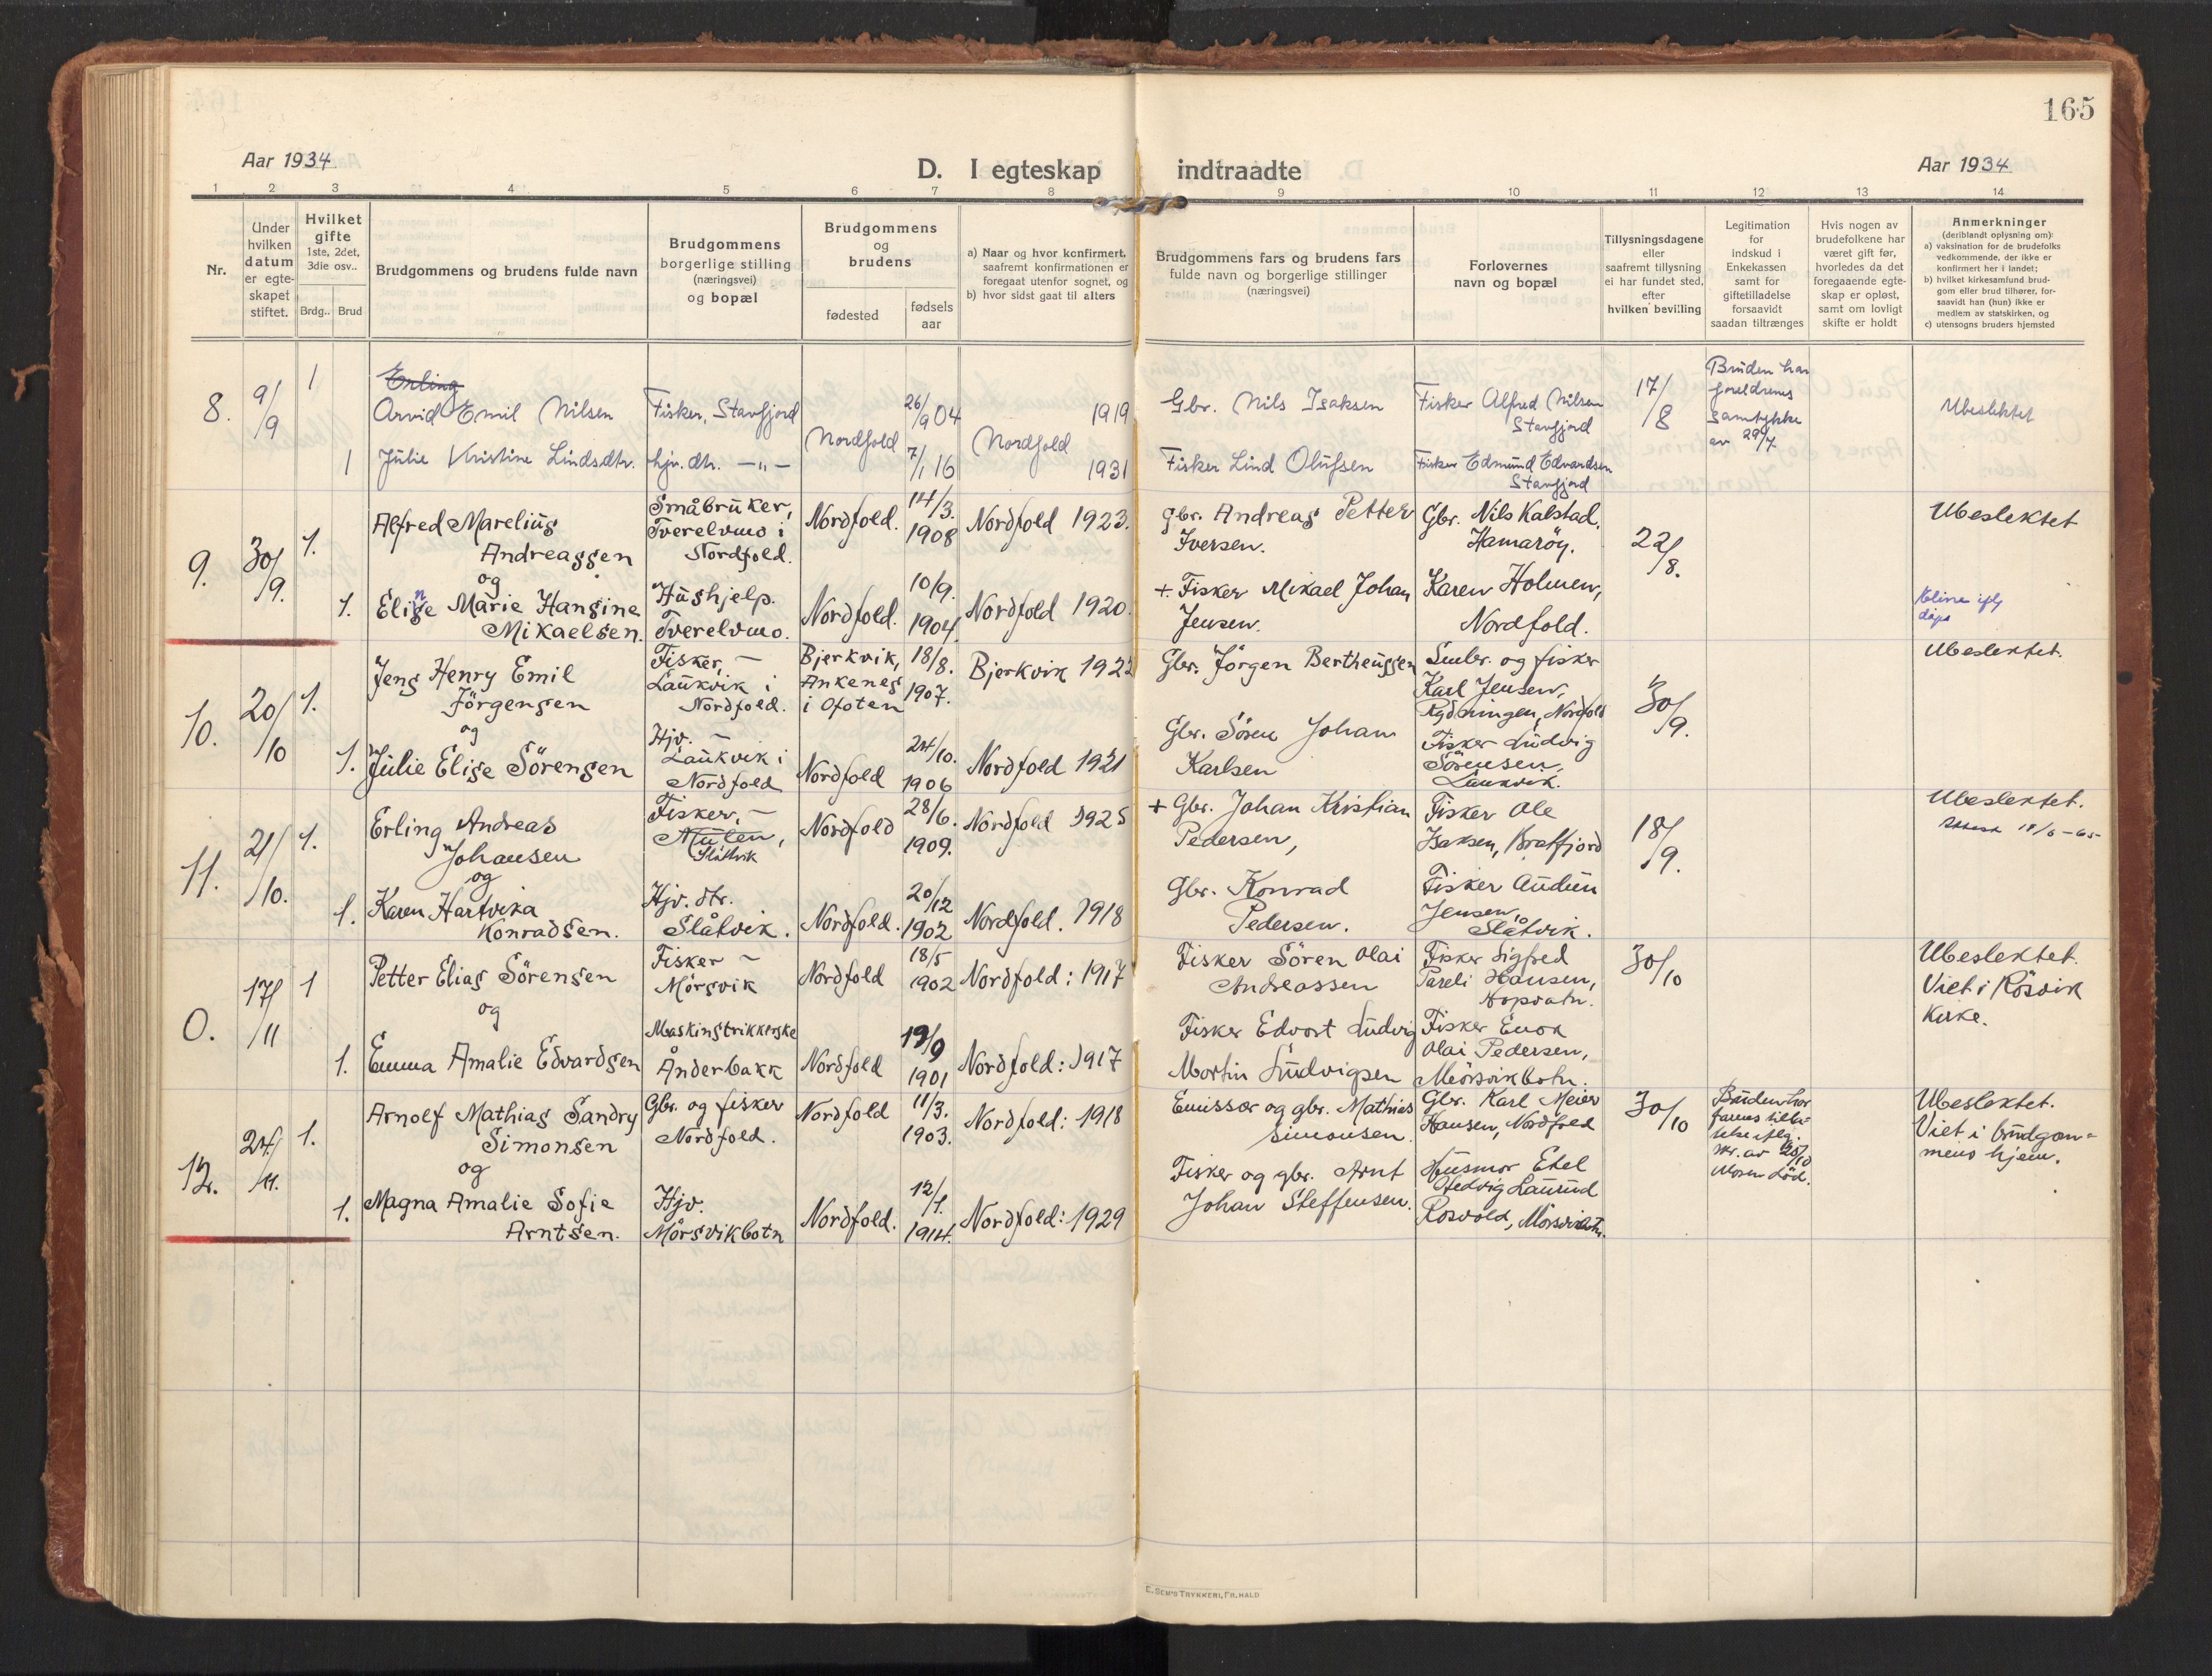 165
Aar 1934.
D. I egteskap indtraadte
Aar 1934
1 2 3 4 5 6 7 8 9 10 11 12 13 14
Nr.
Under
hvilken
datum
er egte-
skapet
stiftet.
Hvilket
gifte
1ste, 2det,
3die osv..
Brdg.. Brud
Brudgommens og brudens fulde navn
Brudgommens
borgerlige stilling
(næringsvei)
og bopæl
Brudgommens
og
brudens
fødested
fødsels
aar
a) Naar og hvor konfirmert,
saafremt konfirmationen er
foregaat utenfor sognet, og
b) hvor sidst gaat til alters
Brudgommens fars og brudens fars
fulde navn og borgerlige stillinger
(næringsvei)
Forlovernes
navn og bopæl
Tillysningsdagene
eller
saafremt tillysning
ei har fundet sted,
efter
hvilken bevilling
Legitimation
for
indskud i
Enkekassen
samt for
giftetilladelse
forsaavidt
saadan tiltrænges
Hvis nogen av
brudefolkene har
været gift før,
hvorledes da det
foregaaende egte-
skap er opløst,
samt om lovligt
skifte er holdt
Anmerkninger
(deriblandt oplysning om):
a) vaksination for de brudefolks
vedkommende, der ikke er
konfirmert her i landet;
b) hvilket kirkesamfund brud-
gom eller brud tilhører, for-
saavidt han (hun) ikke er
medlem av statskirken, og
c) utensogns bruders hjemsted
8. 9/9 1
Erling
Arvid Emil Nilsen
Fisker, Stavfjord
Nordfold
26/9 04
Nordfold 1919
Gbr. Nils Isaksen
Fisker Alfred Nilsen
Stavfjord
17/8
Bruden har
foreldrenes
samtykke
av 29/7.
Ubeslektet
1 Julie Kristine Lindsdtr.
hjv. dtr. -"-
7/1 16
1931
Fisker Lind Olufsen
Fisker Edmund Edvardsen
Stavfjord
9. 30/9. 1.
Alfred Marelius
Andreassen
og
Småbruker,
Tverelvmo i
Nordfold.
Nordfold.
14/3.
1908
Nordfold 1923.
Gbr. Andreas Petter
Iversen.
Gbr. Nils Kalstad,
Hamarøy.
22/8.
Ubeslektet
1. Elise Marie Hansine
n
Mikaelsen.
Hushjelp.
Tverelvmo.
Nordfold.
10/9.
1904
Nordfold 1920.
+ Fisker Mikael Johan
Jensen.
Karen Holmen,
Nordfold.
Eline ifg
dåps
10. 20/10 1.
Jens Henry Emil
Jörgensen
og
Fisker, -
Laukvik i
Nordfold.
Bjerkvik,
Ankenes
i Ofoten
18/8.
1907.
Bjerkvik 1922
Gbr. Jörgen Bertheussen
Smbr. og fisker
Karl Jensen,
Rydningen, Nordfold
30/9.
Ubeslektet.
1. Julie Elise Sörensen
Hjv. -
Laukvik i
Nordfold
Nordfold
24/10.
1906
Nordfold 1921
Gbr. Sören Johan
Karlsen
Fisker Ludvig
Sörensen,
Laukvik.
11. 21/10. 1.
Erling Andreas
Johansen
og
Fisker, -
Mulen,
Slåtvik
Nordfold
28/6.
1909.
Nordfold 1925
+ Gbr. Johan Kristian
Pedersen,
Fisker Ole
Isaksen, Brattfjord
18/9.
Ubeslektet.
Attest 18/6-65
1. Karen Hartvika
Konradsen.
Hjv. dtr.
Slåtvik.
Nordfold.
20/12
1902
Nordfold. 1918
Gbr. Konrad
Pedersen.
Fisker Audun
Jensen,
Slåtvik.
0. 17/11 1
Petter Elias Sörensen
og
Fisker -
Mörsvik
Nordfold
18/5
1902
Nordfold: 1917
Fisker Sören Olai
Andreassen
Fisker Sigfred
Pareli Hansen,
Hopvatn.
30/10
Ubeslektet.
Viet i Rösvik
Kirke.
1. Emma Amalie Edvardsen
Maskinstrikkerske
Ånderbakk
Nordfold
19/9
1901
Nordfold: 1917
Fisker Edvart Ludvig
Martin Ludvigsen
Fisker Enok
Olai Pedersen,
Mörsvikbotn.
12. 24/11. 1.
Arnolf Mathias Sandry
Simonsen
og
Gbr. og fisker
Nordfold.
Nordfold
11/3.
1903.
Nordfold: 1918
Emissær og gbr. Mathias
Simonsen.
Gbr. Karl Meier
Hansen, Nordfold
30/10
Bruden har
farens tilla-
telse iflg.
skr. av 20/10
Moren död.
Ubeslektet.
Viet i brudgom-
mens hjem.
1. Magna Amalie Sofie
Arntsen.
Hjv.
Mörsvikbotn
Nordfold.
12/1.
1914.
Nordfold: 1929
Fisker og gbr. Arnt
Johan Steffensen.
Husmor Etel
Hedvig Laurud
Rosvold, Mörsvikbotn.
E. SEM'S TRYKKERI, FR.HALD